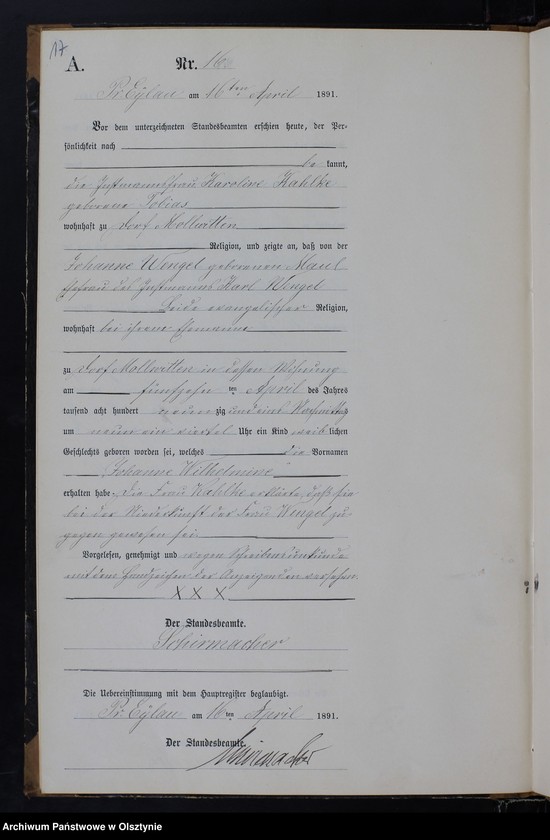 17
A.
Nr. 16
Pr. Eylau am 16ten April 1891.
Vor dem unterzeichneten Standesbeamten erschien heute, der Per-
sönlichkeit nach
be kannt,
die Instmannsfrau Karoline Kahlke
geborene Tobias
wohnhaft zu Dorf Mollwitten
Religion, und zeigte an, daß von der
Johanne Wengel geborenen Maul
Ehefrau des Instmanns Karl Wengel
Beide evangelischer Religion,
wohnhaft bei ihrem Ehemanne
zu Dorf Mollwitten in dessen Wohnung
am fünfzehn ten April des Jahres
tausend acht hundert neun zig und eins Nachmittag
um neun ein viertel Uhr ein Kind weib lichen
Geschlechts geboren worden sei, welches die Vornamen
Johanne Wilhelmine
erhalten habe. Die Frau Kahlke erklärte, daß sie
bei der Niederkunft der Frau Wengel zu-
gegen gewesen sei.
Vorgelesen, genehmigt und wegen Schreibensunkunde
mit dem Handzeichen der Anzeigenden versehen.
X X X
Der Standesbeamte.
Schirmacher
Die Uebereinstimmung mit dem Hauptregister beglaubigt.
Pr. Eylau am 16ten April 1891.
Der Standesbeamte.
Schirmacher
Archiwum Państwowe w Olsztynie